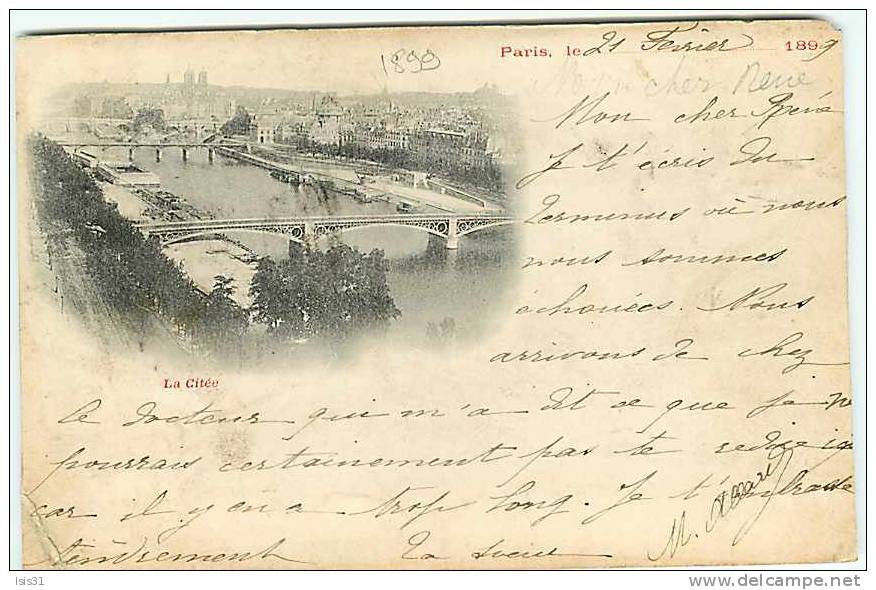 1899
Paris, le 21 Fevrier 1899
Mon cher René
Mon cher René
Je t'écris du
Terminus où nous
nous sommes
échouées. Nous
arrivons de chez
La Citée
le docteur qui m'a dit ce que je ne
pourrais certainement pas te redire ici
car il y en a trop long. Je t'embrasse
tendrement ta soeur
M.
Isis31
www.delcampe.net